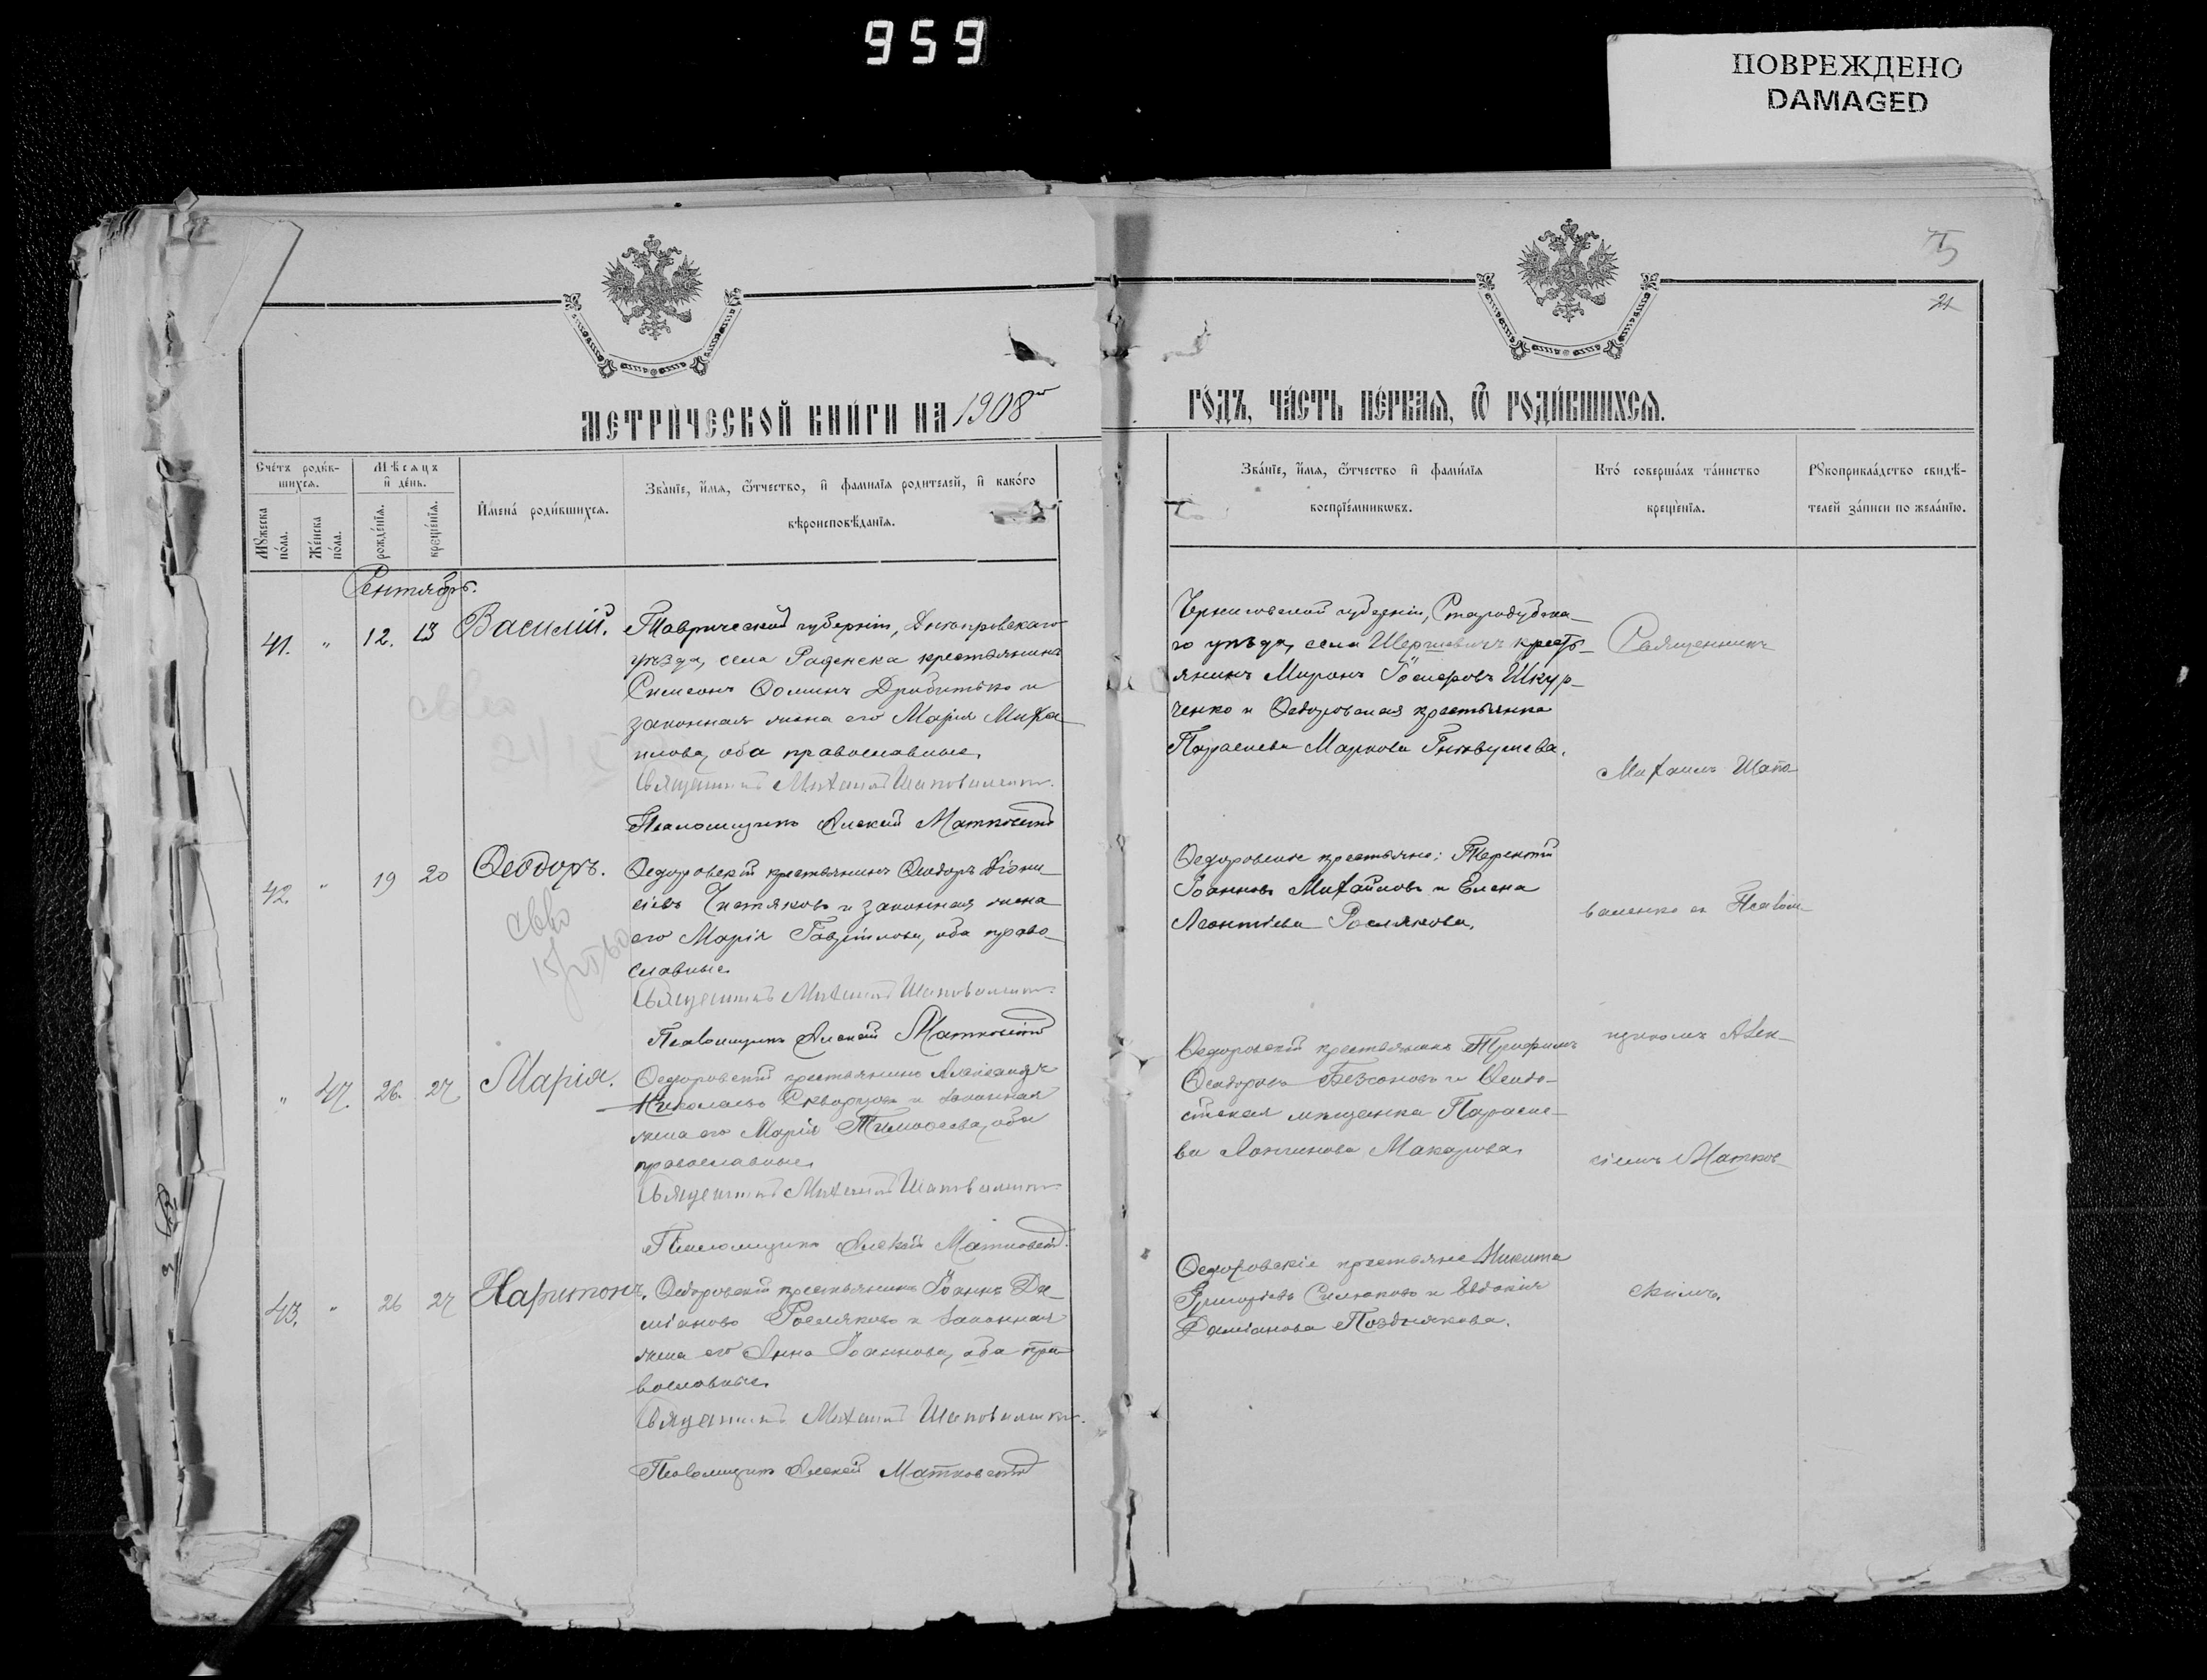 959
ПОВРЕЖДЕНО
DAMAGED
МЕТРИЧЕСКОЙ КНИГИ НА 1908й
ГОДЪ, ЧАСТЬ ПЕРВАЯ, Ѿ РОДИВШИХСЯ.
24
Счетъ родив-
шихся.
Мѣсяцъ
и день.
Мужеска
пола.
Женска
пола.
рожденія.
крещенія.
Имена родившихся.
Званіе, имя, ѿтчество, и фамилія родителей, и какого
вѣроисповѣданія.
Званіе, имя, ѿтчество и фамилія
воспріемниковъ.
Кто совершалъ таинство
крещенія.
Рукоприкладство свидѣ-
телей записи по желанію.
Сентябрь.
41. " 12. 13 Василій.
Таврической губерніи, Днепровскаго
уѣзда, села Раденска крестьянинъ
Симеонъ Ѳоминъ Дробитько и
законная жена его Марія Михаи
лова, оба православные.
Священникъ Михаилъ Шаповаленко.
Псаломщикъ Алексій Матковскій
Черниговской губерніи, Стародубска-
го уѣзда, села крестъ-
янинъ Миронъ Шкур-
ченко и Ѳедоровская крестьянка
Параскева Маркова
42. " 19 20 Ѳеодоръ.
Ѳедоровскій крестьянинъ Ѳеодоръ Діони
сіевъ Чистяковъ и законная жена
его Марія Гавріилова, оба право-
славные
Священникъ Михаилъ Шаповаленко.
Псаломщикъ Алексій Матковскій
св-во
Ѳедоровскіе крестьяне: Терентій
Іоанновъ Михайловъ и Елена
Леонтіева Рослякова.
" 47. 26. 27. Марія.
Ѳедоровскій крестьянинъ Александръ
Николаевъ Скворцовъ и законная
жена его Марія Тимоѳеева, оба
православные.
Священникъ Михаилъ Шаповаленко.
Псаломщикъ Алексій Матковскій.
Ѳедоровскій крестьянинъ Трифилъ
Ѳеодоровъ Безсоновъ и Ѳеодо-
сійская мѣщанка Параске-
ва Лонгинова Макарова.
43. " 26 27 Харитонъ.
Ѳедоровскій крестьянинъ Іоаннъ Да-
міановъ Росляковъ и законная
жена его Анна Іоаннова, оба пра
вославные.
Священникъ Михаилъ Шаповаленко.
Псаломщикъ Алексій Матковскій
Ѳедоровскіе крестьяне Никита
Григоріевъ Симаковъ и Евдокія
Даміанова Позднякова.
Священникъ
Михаилъ Шапо-
валенко съ Псалом-
щикомъ Алек-
сіемъ Матков-
скимъ.